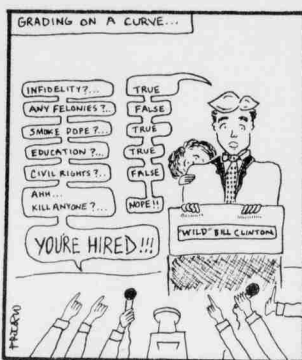 GRADING ON A CURVE...
INFIDELITY?...
TRUE
ANY FELONIES?..
FALSE
SMOKE DOPE?...
TRUE
EDUCATION?...
TRUE
CIVIL RIGHTS?...
FALSE
AHH...
KILL ANYONE?...
NOPE!!
YOU'RE HIRED!!!
"WILD" BILL CLINTON